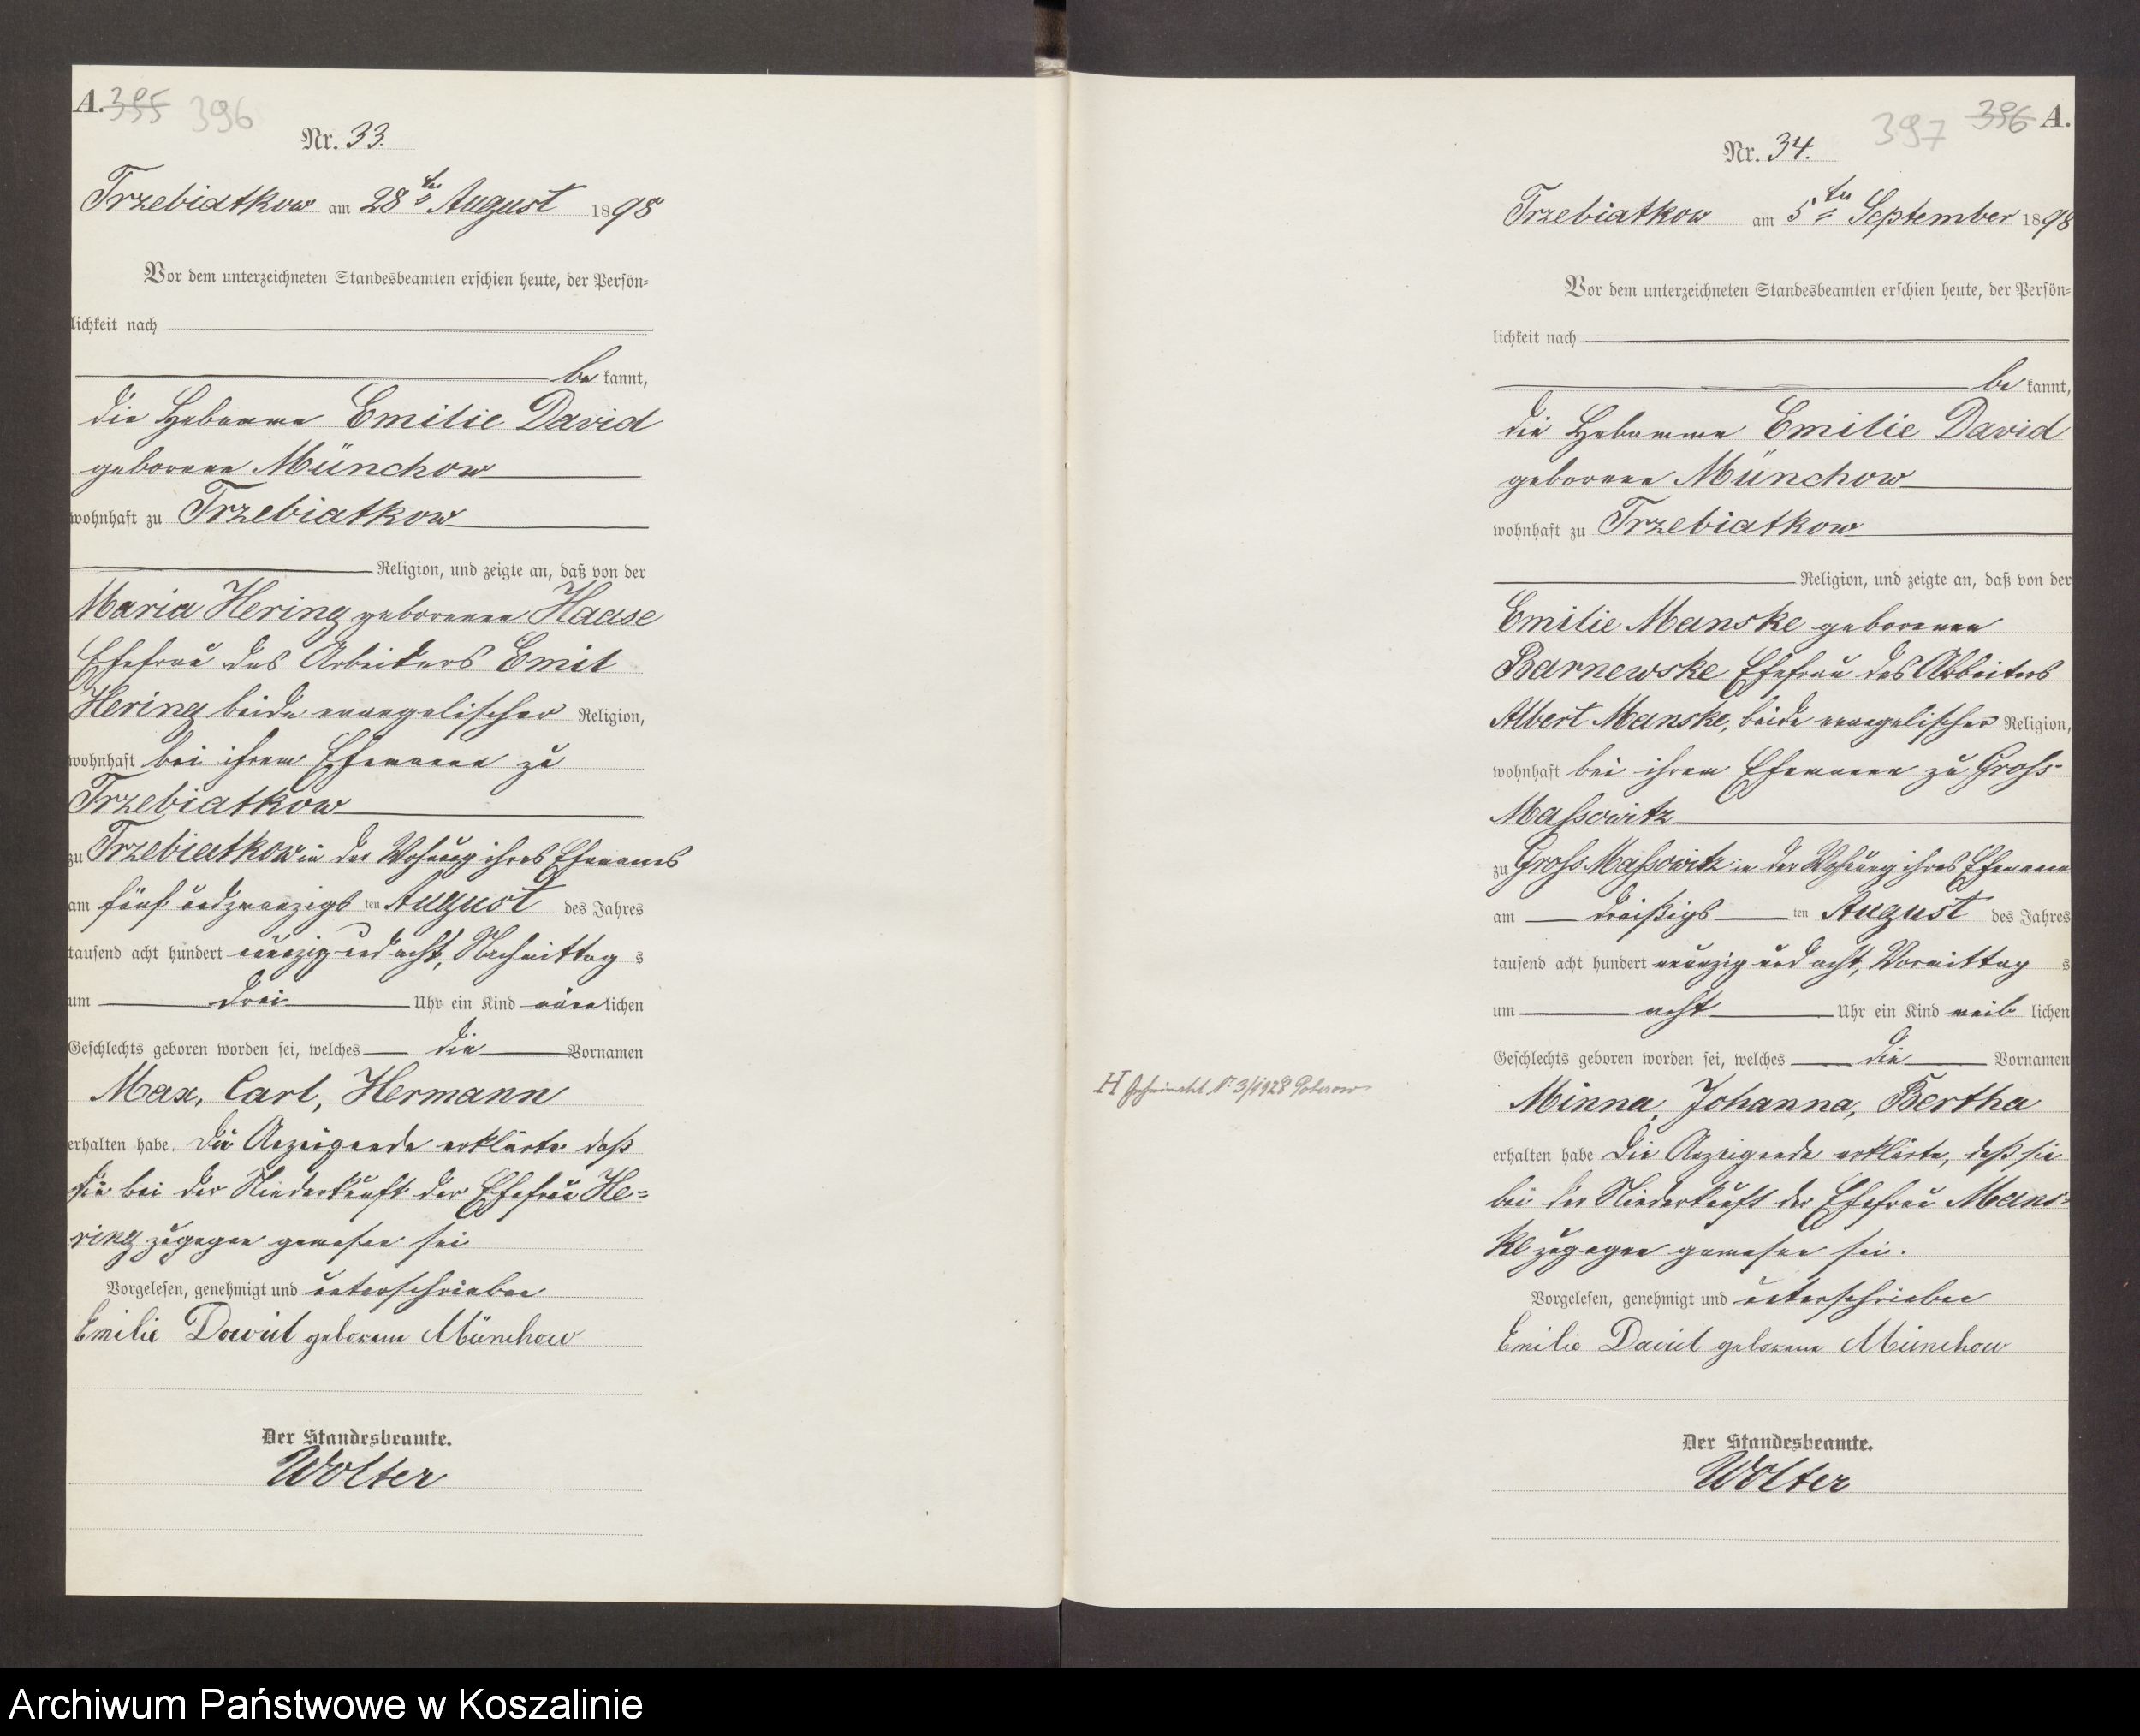 A. 395 396
Nr. 33.
Trzebiatkow am 28ten August 1898
Vor dem unterzeichneten Standesbeamten erschien heute, der Persön-
lichkeit nach
be kannt,
die Hebamme Emilie David
geborene Münchow
wohnhaft zu Trzebiatkow
Religion, und zeigte an, daß von der
Maria Hering geborenen Haase
Ehefrau des Arbeiters Emil
Hering beide evangelischer Religion,
wohnhaft bei ihrem Ehemann zu
Trzebiatkow
zu Trzebiatkow in der Wohnung ihres Ehemanns
am fünf undzwanzigs ten August des Jahres
tausend acht hundert neunzig und acht, Nachmittag s
um drei Uhr ein Kind männ lichen
Geschlechts geboren worden sei, welches die Vornamen
Max, Carl, Hermann
erhalten habe. Die Anzeigende erklärte daß
sie bei der Niederkunft der Ehefrau He=
ring zugegen gewesen sei
Vorgelesen, genehmigt und unterschrieben
Emilie David geborene Münchow
Der Standesbeamte.
Wolter
397 396 A.
Nr. 34.
Trzebiatkow am 5ten September 1898
Vor dem unterzeichneten Standesbeamten erschien heute, der Persön-
lichkeit nach
be kannt,
die Hebamme Emilie David
geborene Münchow
wohnhaft zu Trzebiatkow
Religion, und zeigte an, daß von der
Emilie Manske geborenen
Barnewske Ehefrau des Arbeiters
Albert Manske, beide evangelischer Religion,
wohnhaft bei ihrem Ehemann zu Gross-
Massowitz
zu Gross Massowitz in der Wohnung ihres Ehemann
am dreißigs ten August des Jahres
tausend acht hundert neunzig und acht, Vormittag s
um acht Uhr ein Kind weib lichen
Geschlechts geboren worden sei, welches die Vornamen
H Nr. 3/1928
Minna, Johanna, Bertha
erhalten habe Die Anzeigende erklärte, daß sie
bei der Niederkunft der Ehefrau Mans=
ke zugegen gewesen sei.
Vorgelesen, genehmigt und unterschrieben
Emilie David geborene Münchow
Der Standesbeamte.
Wolter
Archiwum Państwowe w Koszalinie